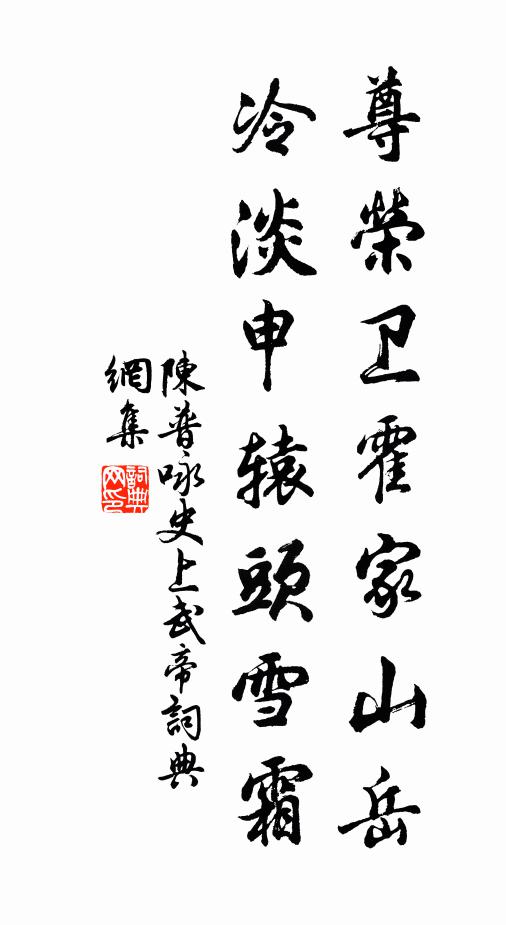 尊榮卫霍家山岳
冷淡申辕頭雪霜
陳普咏史上武帝詞典
網集
詞典
网印